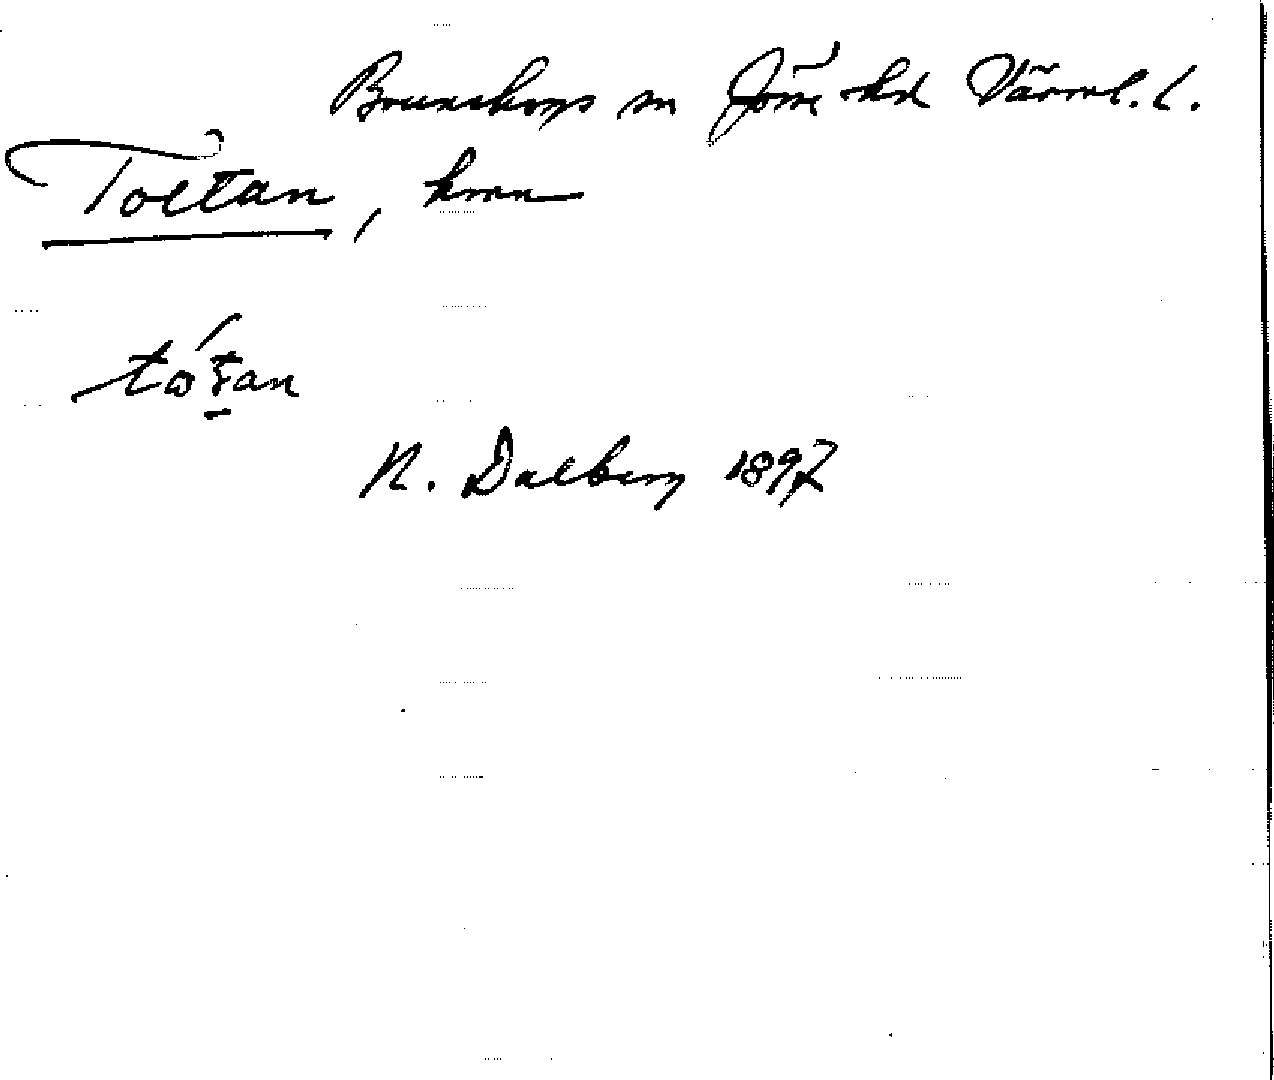 Brunskogs sn Jösse hd Värml. l.
Toltan, kvarn
N. Dalberg 1897